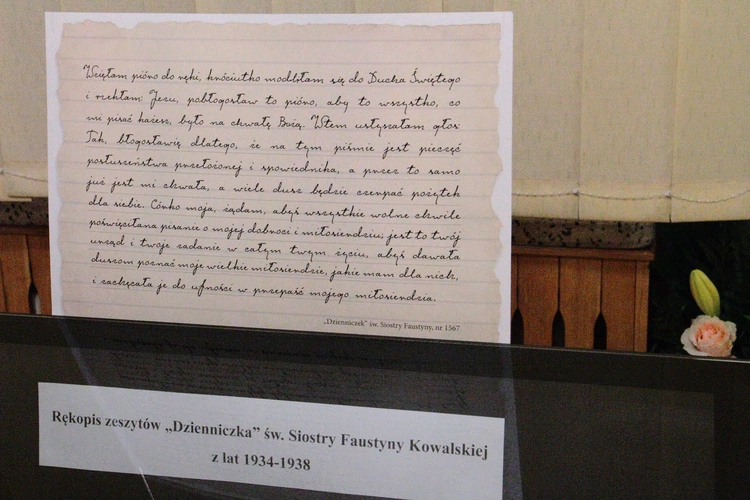 Wzięłam pióro do ręki, króciutko modliłam się do Ducha Świętego
i rzekłam: Jezu, pobłogosław to pióro, aby to wszystko, co
mi pisać każesz, było na chwałę Bożą. Wtem usłyszałam głos:
Tak, błogosławię, dlatego, że na tym piśmie jest pieczęć
posłuszeństwa przełożonej i spowiednika, a przez to samo
już jest mi chwała, a wiele dusz będzie czerpać pożytek
dla siebie. Córko moja, żądam, abyś wszystkie wolne chwile
poświęcała pisanie o mojej dobroci i miłosierdziu; jest to twój
urząd i twoje zadanie w całym twym życiu, abyś dawała
duszom poznać moje wielkie miłosierdzie, jakie mam dla nich,
i zachęcała je do ufności w przepaść mojego miłosierdzia.
„Dzienniczek” św. Siostry Faustyny, nr 1567
Rękopis zeszytów „Dzienniczka” św. Siostry Faustyny Kowalskiej
z lat 1934-1938